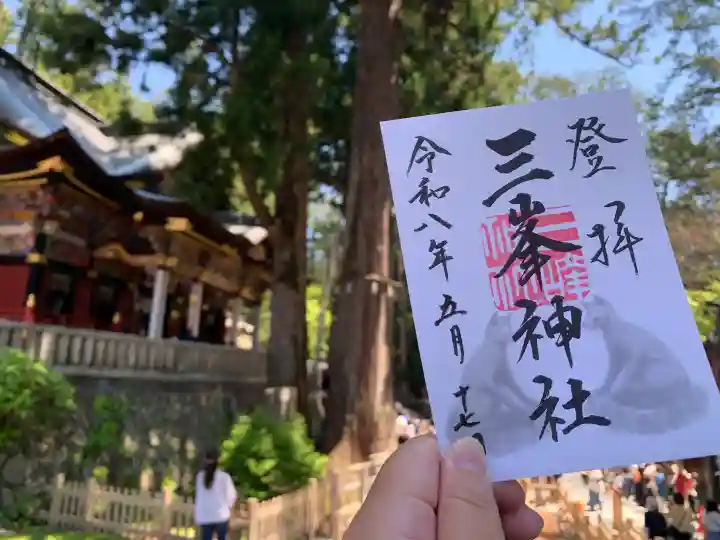 登拝
三峯神社
令和八年五月十七日